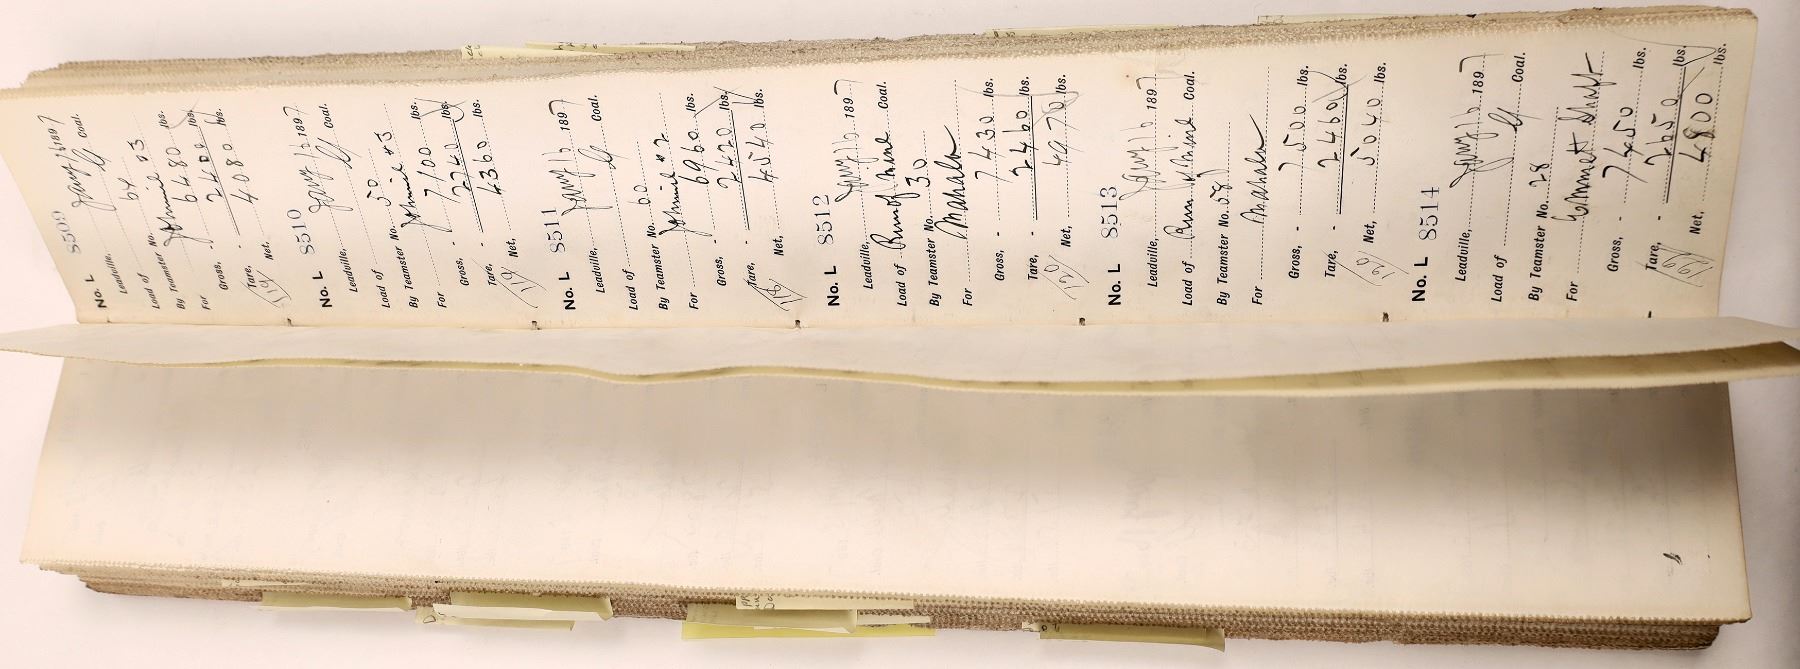 No. L 8509
Leadville, Jany 16 1897
Load of Coal.
By Teamster No. 64
For Johnnie #3
Gross, - 6480 lbs.
Tare, - 2400 lbs.
Net, 4080 lbs.
No. L 8510
Leadville, Jany 16 1897
Load of Coal.
By Teamster No. 50
For Johnnie #3
Gross, - 7100 lbs.
Tare, - 2240 lbs.
Net, 4360 lbs.
119
No. L 8511
Leadville, Jany 16 1897
Load of Coal.
By Teamster No. 60
For Johnnie #2
Gross, - 6960 lbs.
Tare, 2420 lbs.
Net, 4540 lbs.
No. L 8512
Leadville, Jany 16 1897
Load of Run of Mine Coal.
By Teamster No. 30
For Mahala
Gross, - 7430 lbs.
Tare, - 2460 lbs.
Net, 4970 lbs.
120
No. L 8513
Leadville, Jany 16 1897
Load of Run of Mine Coal.
By Teamster No. 58
For Mahala
Gross, - 7500 lbs.
Tare, - 2460 lbs.
Net, 5040 lbs.
No. L 8514
Leadville, Jany 16 1897
Load of Coal.
By Teamster No. 28
For Emmet Shaft
Gross, - 7450 lbs.
Tare, - 2650 lbs.
Net, 4800 lbs.